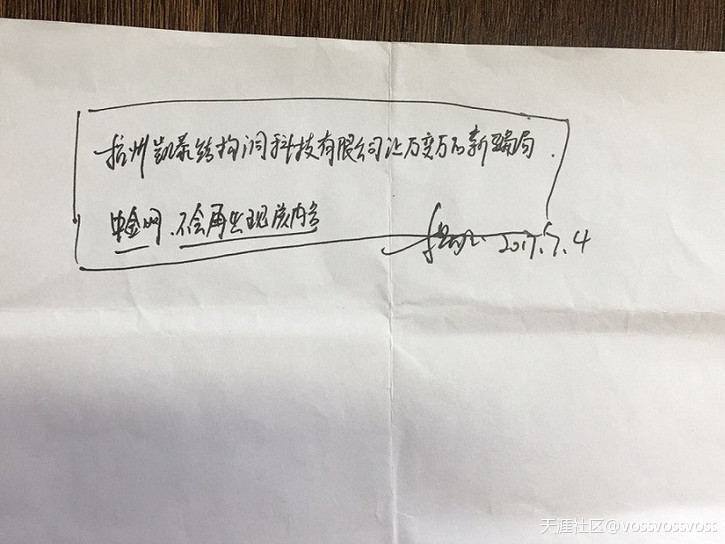 杭州凯泰结构润科技有限公司让万变万的新骗局.
中金网.不会再出现该内容
2017.5.4
天涯社区@vossvossvoss